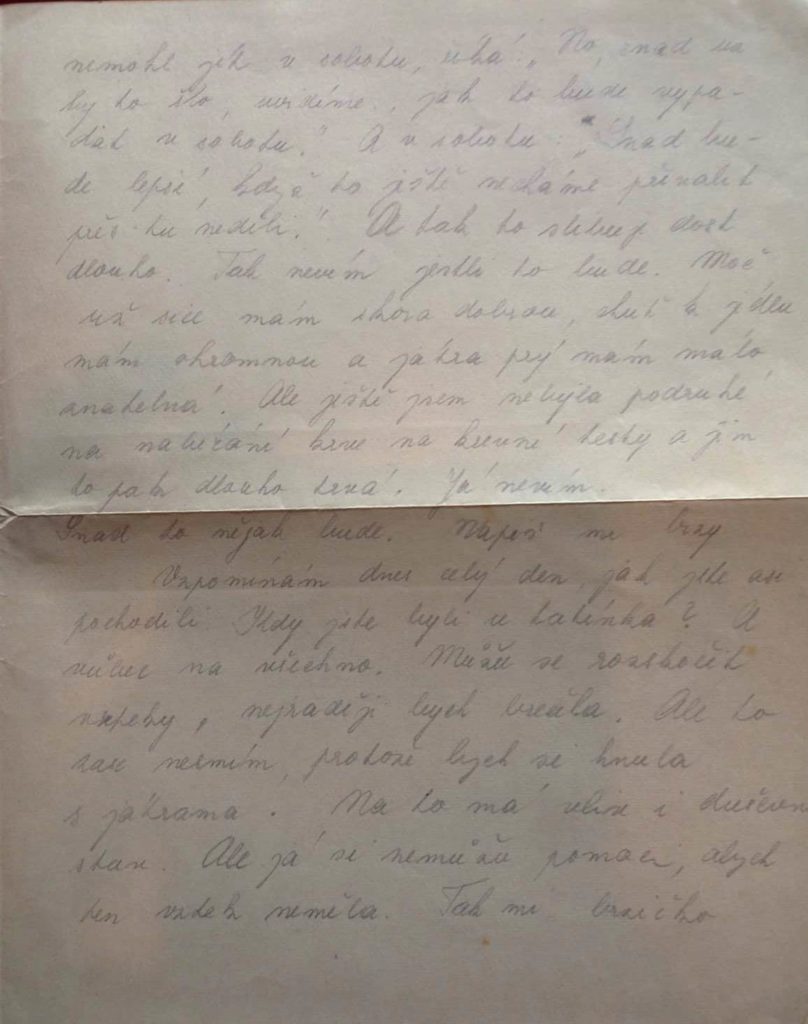 nemohl jít v sobotu, říká: „No, snad už
by to šlo, uvidíme, jak to bude vypa-
dat v sobotu." A v sobotu: „Snad bu-
de lepší, když to ještě necháme převalit
přes tu neděli." A tak to slibují dost
dlouho. Tak nevím jestli to bude. Moč
už sice mám skoro dobrou, chuť k jídlu
mám ohromnou a játra prý mám málo
znatelná. Ale ještě jsem nebyla podruhé
na nabírání krve na krevní testy a jim
to pak dlouho trvá. Já nevím.
Snad to nějak bude. Napiš mi brzy
Vzpomínám dnes celý den, jak jste asi
pochodili. Kdy jste byli u tatínka? A
vůbec na všechno. Můžu se rozskočit
vzteky, nejraději bych brečela. Ale to
zase nesmím, protože bych si hnula
s játrama. Na to má vliv i duševní
stav. Ale já si nemůžu pomoci, abych
ten vztek neměla. Tak mi brzičko